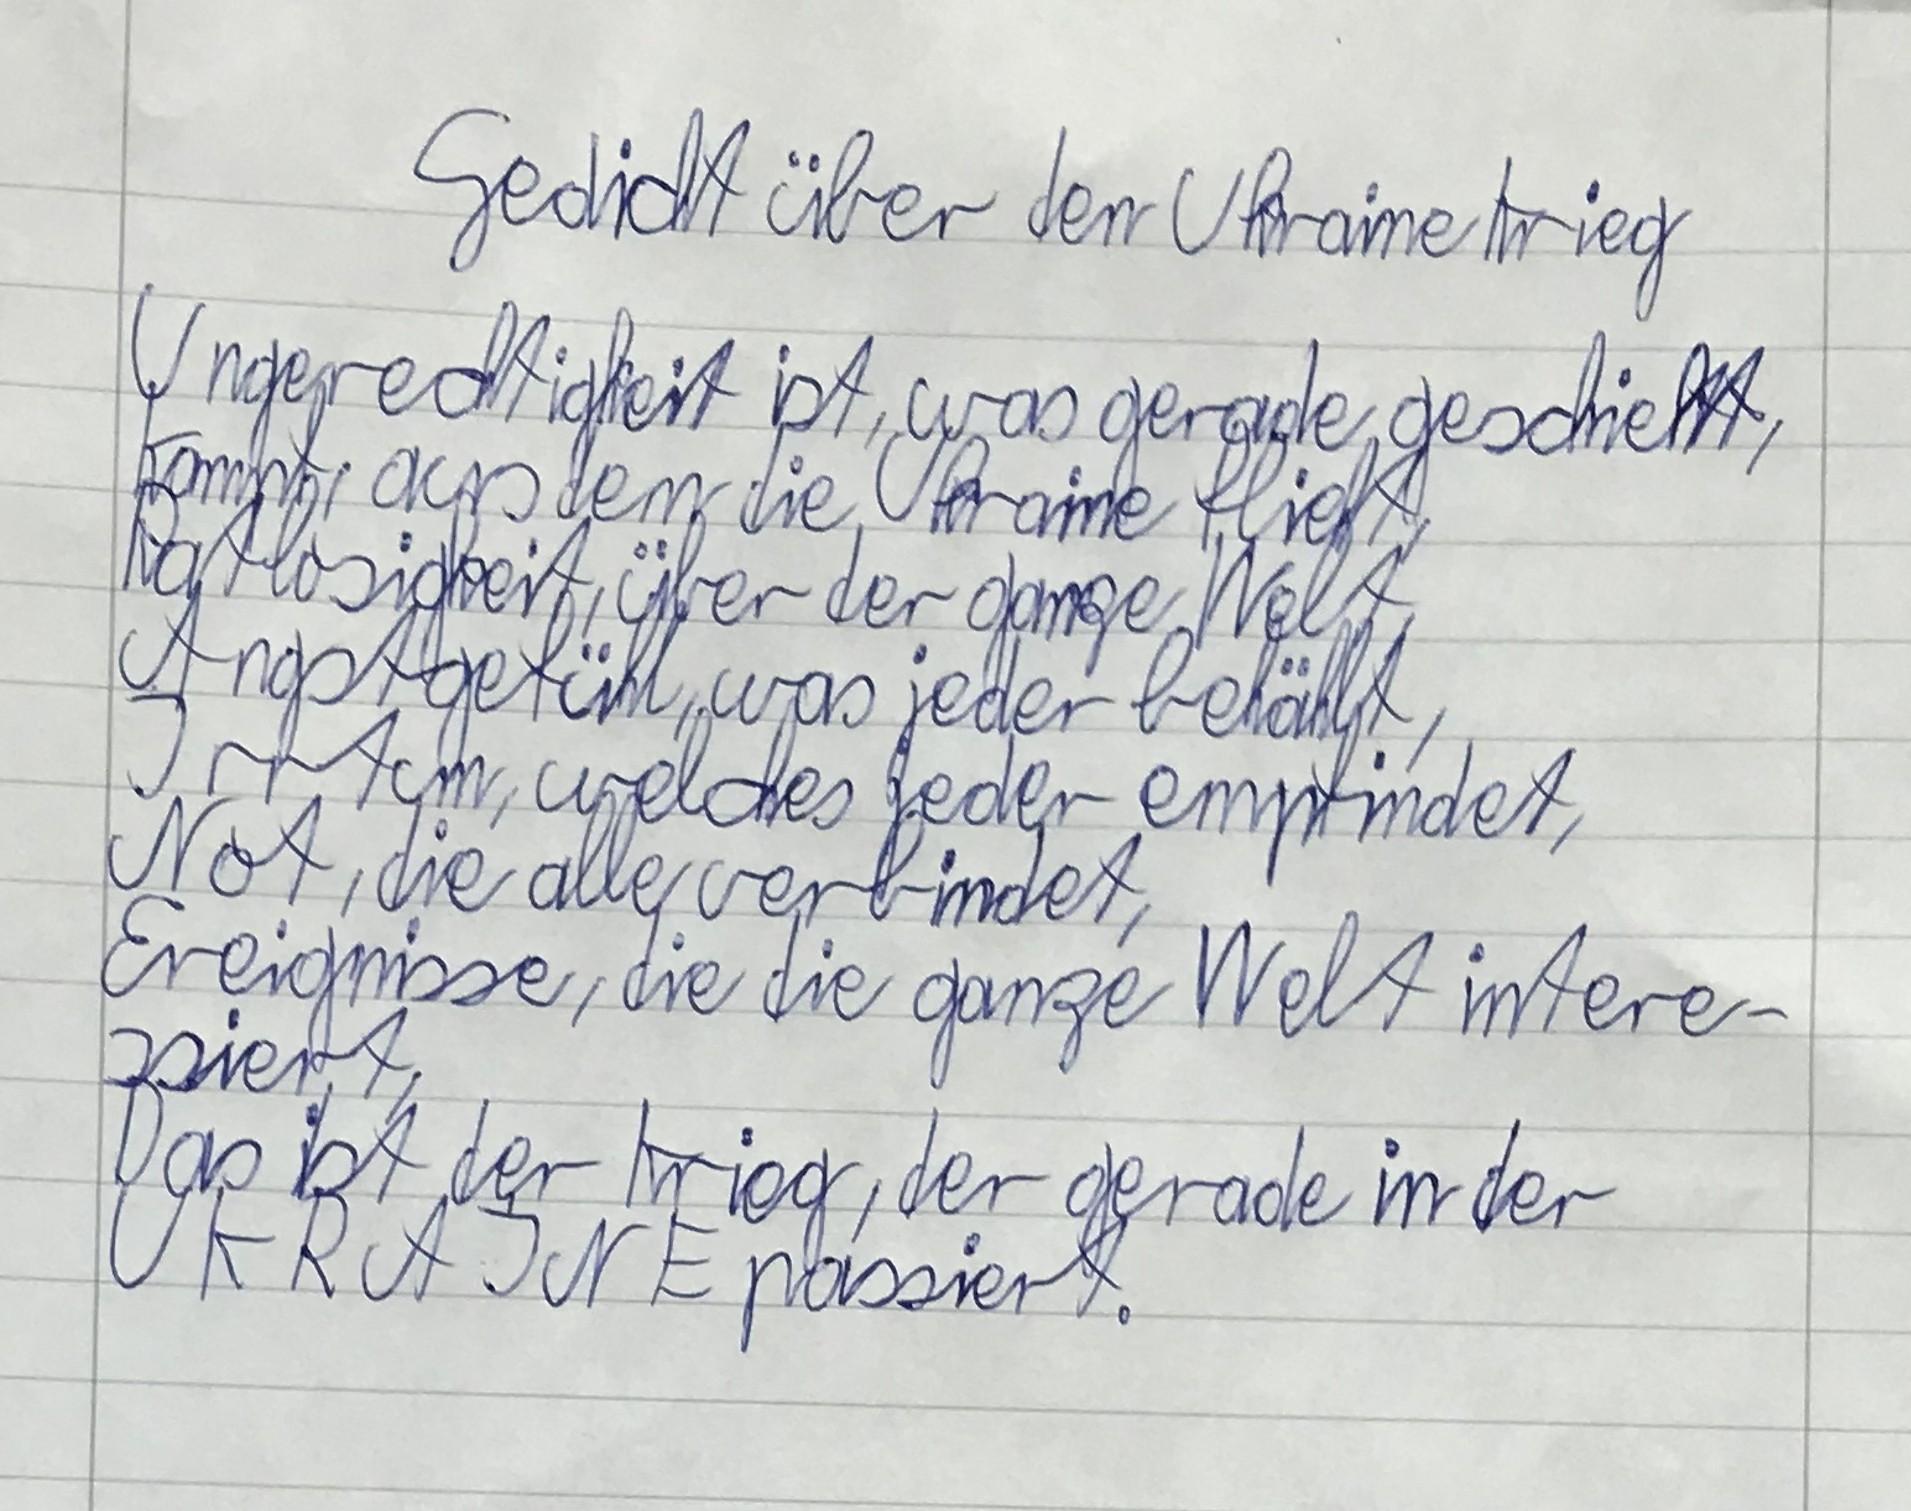 Gedicht über den Ukrainekrieg
Ungerechtigkeit ist, was gerade geschieht,
Kampf, aus dem die Ukraine flieht,
Ratlosigkeit, über der ganze Welt,
Angstgefühl, was jeder behält,
Irrtum, welches jeder empfindet,
Not, die alle verbindet,
Ereignisse, die die ganze Welt intere-
ssiert,
Das ist der Krieg, der gerade in der
UKRAINE passiert.